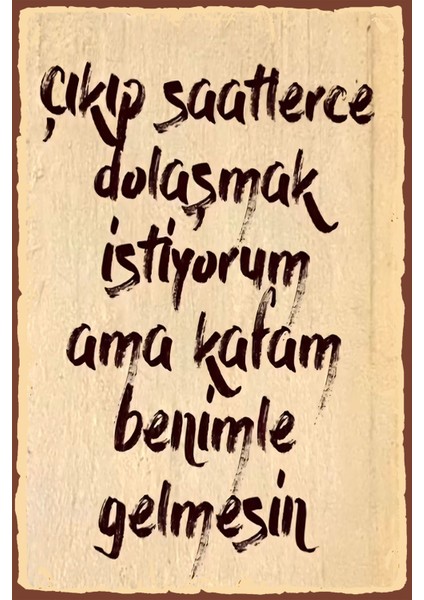 çıkıp saatlerce
dolaşmak
istiyorum
ama kafam
benimle
gelmesin